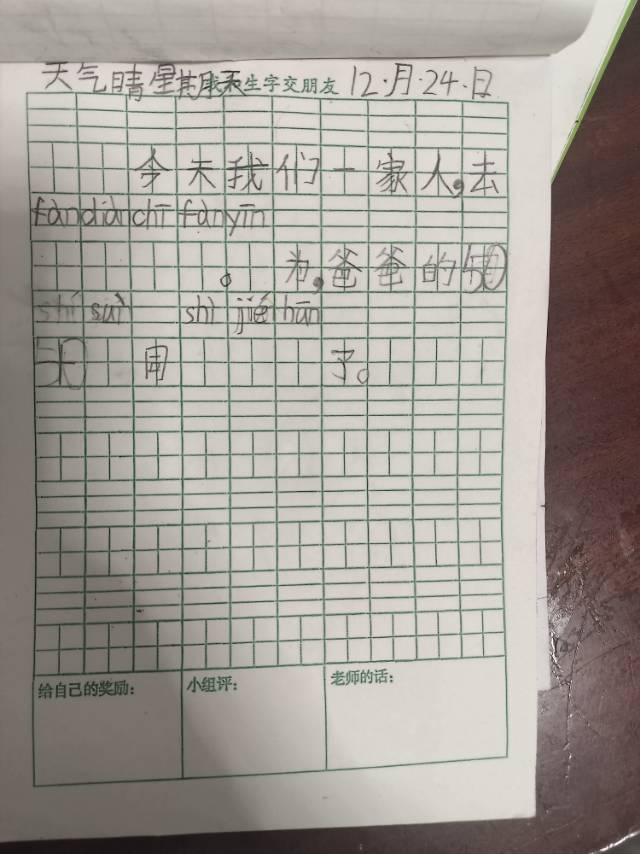 天气晴星期天 我和生字交朋友 12.月.24.日
今天我们一家人,去
fàn diàn chī fàn yīn
。为,爸爸的50
shí suì shì jié hūn
50 周 了。
给自己的奖励: 小组评: 老师的话: